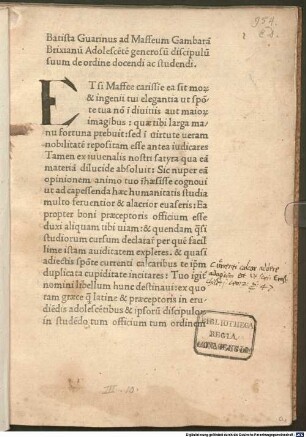 Batista Guarinus ad Maffeum Gambarā
Brixianū Adolescētē generosū discipulū
suum de ordine docendi ac studendi.
ETSi Maffee carissie ea sit moꝝ
& ingenii tui elegantia ut spō-
te tua nō ī diuitiis aut maioꝝ
imagibus : quātibi larga ma-
nu fortuna prebuit: sed ī uirtute ueram
nobilitatē repositam esse antea iudicares
Tamen ex iuuenalis nostri satyra qua eā
materiā dilucide absoluit: Sic nuper eā
opinionem animo tuo īhæsisse cognoui
ut ad capessenda hæc humanitatis studia
multo feruentior & alacrior euaseris: Ea
propter boni præceptoris officium esse
duxi aliquam tibi uiam: & quendam qsi
studiorum cursum declarar̄ per quē facil
lime istam auiditatem expleres. & quasi
adiectis spōte currenti calcaribus te ipm̄
duplicata cupiditate incitares: Tuo igit
nomini libellum hunc destinaui: ex quo
tam græce q̄ latine & præceptoris in eru-
diēdis adolescētibus & ipsorū discipuloꝝ
in studēdo tum officium tum ordinem
BIBLIOTHECA
REGIA
MONACENSIS